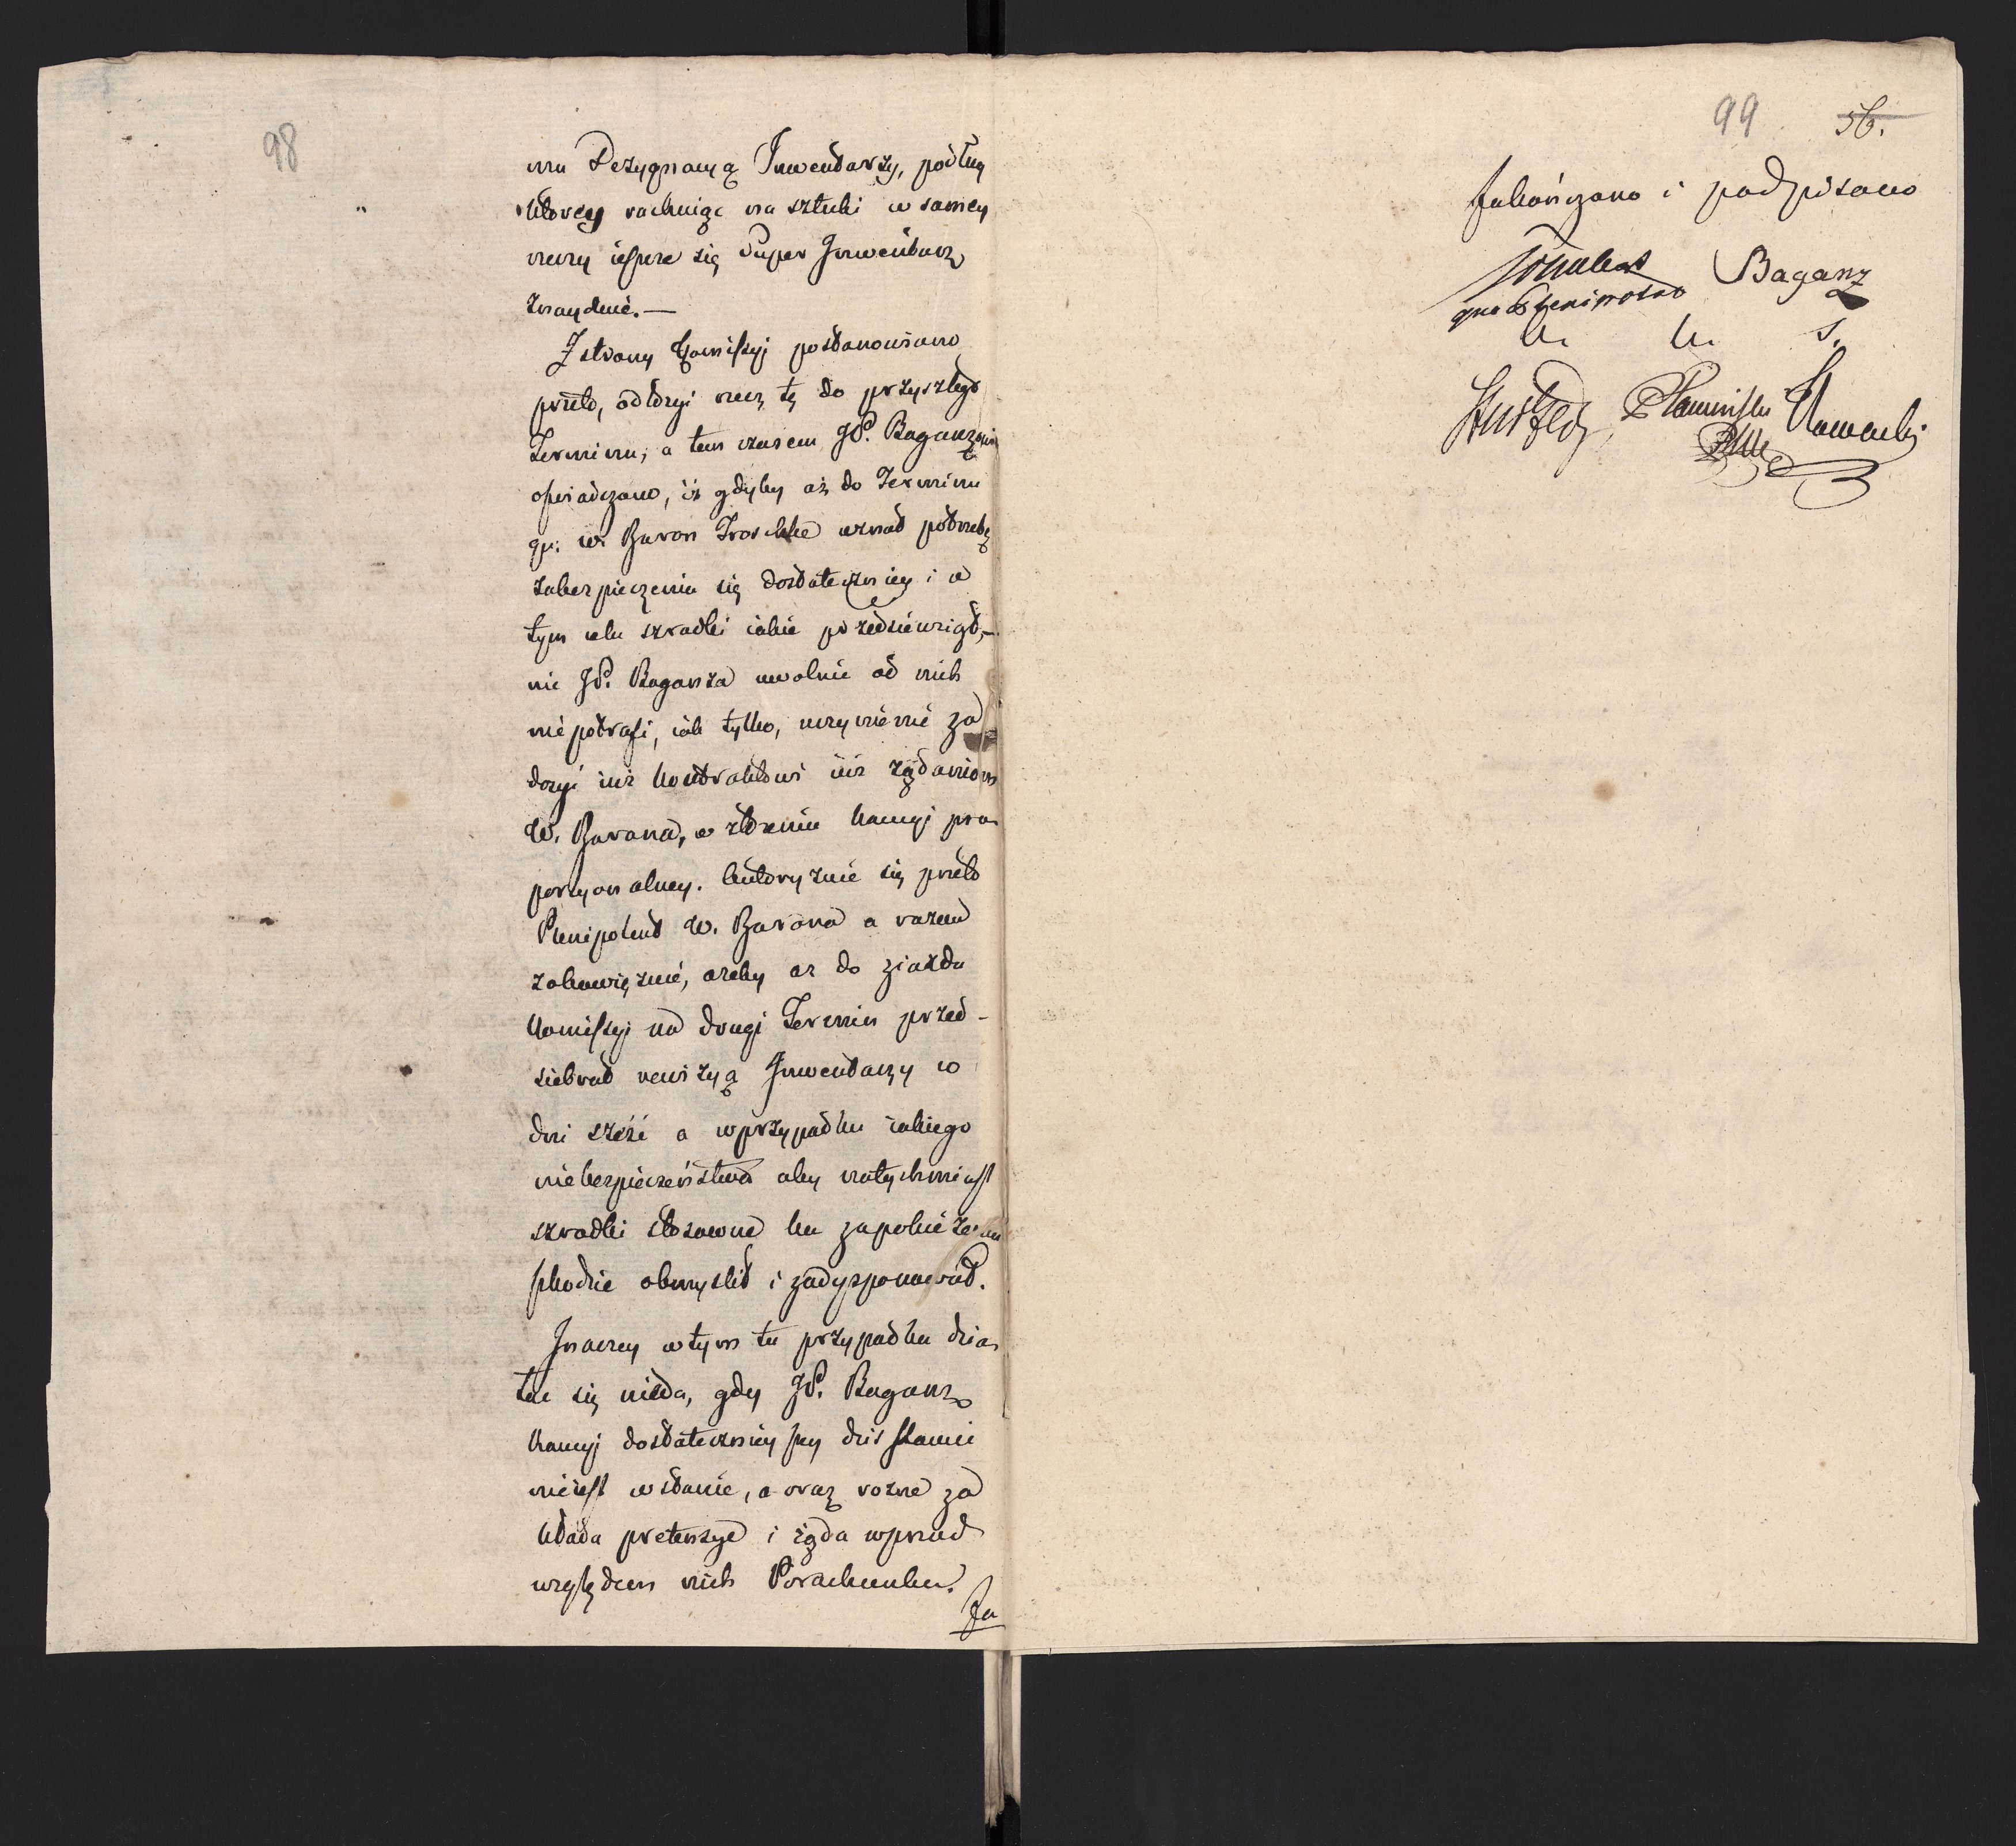 98
mu Dezygnacyą Inwentarzy, podług
którey rachuiąc na sztuki w samey
rzeczy ieszcze się Super Inwentarz
znaydzie.—
Z strony Komissyi postanowiono
przeto, odłożyć rzecz tę do przyszłego
Terminu, a tem czasem JP. Baganzowi
oświadczono, iż gdyby aż do Terminu
gu. W. Baron Troschke uznał potrzebę
zabezpieczenia się dostateczniey i w
tym celu szrodki iakie przedsiewziął,—
nic JP. Baganza uwolnić od nich
nie potrafi, iak tylko, uczynienie za
dosyć iuż kontraktowi iuż żądaniom
W. Barona, w złożeniu kaucyi pro
porcyonalney. Autoryzuie się przeto
Plenipotent W. Barona a razem
zobowięzuie, ażeby aż do ziazdu
Komissyi na drugi Termin przed-
siebrał rewizyą Inwentarzy co
dni sześć a w przypadku iakiego
niebezpieczeństwa aby natychmiast
szrodki stosowne ku zapobieżeniu
szkodzie obmyślił i zadysponował.
Inaczey w tym tu przypadku dzia
łać się nieda, gdy JP. Baganz
kaucyi dostateczniey przy dziś stawić
nieiest w stanie, a oraz rożne za
kłada pretensye i żąda wprzod
względem nich Porachunku.
Za
99 56.
Zakończono i podpisano
Baganz